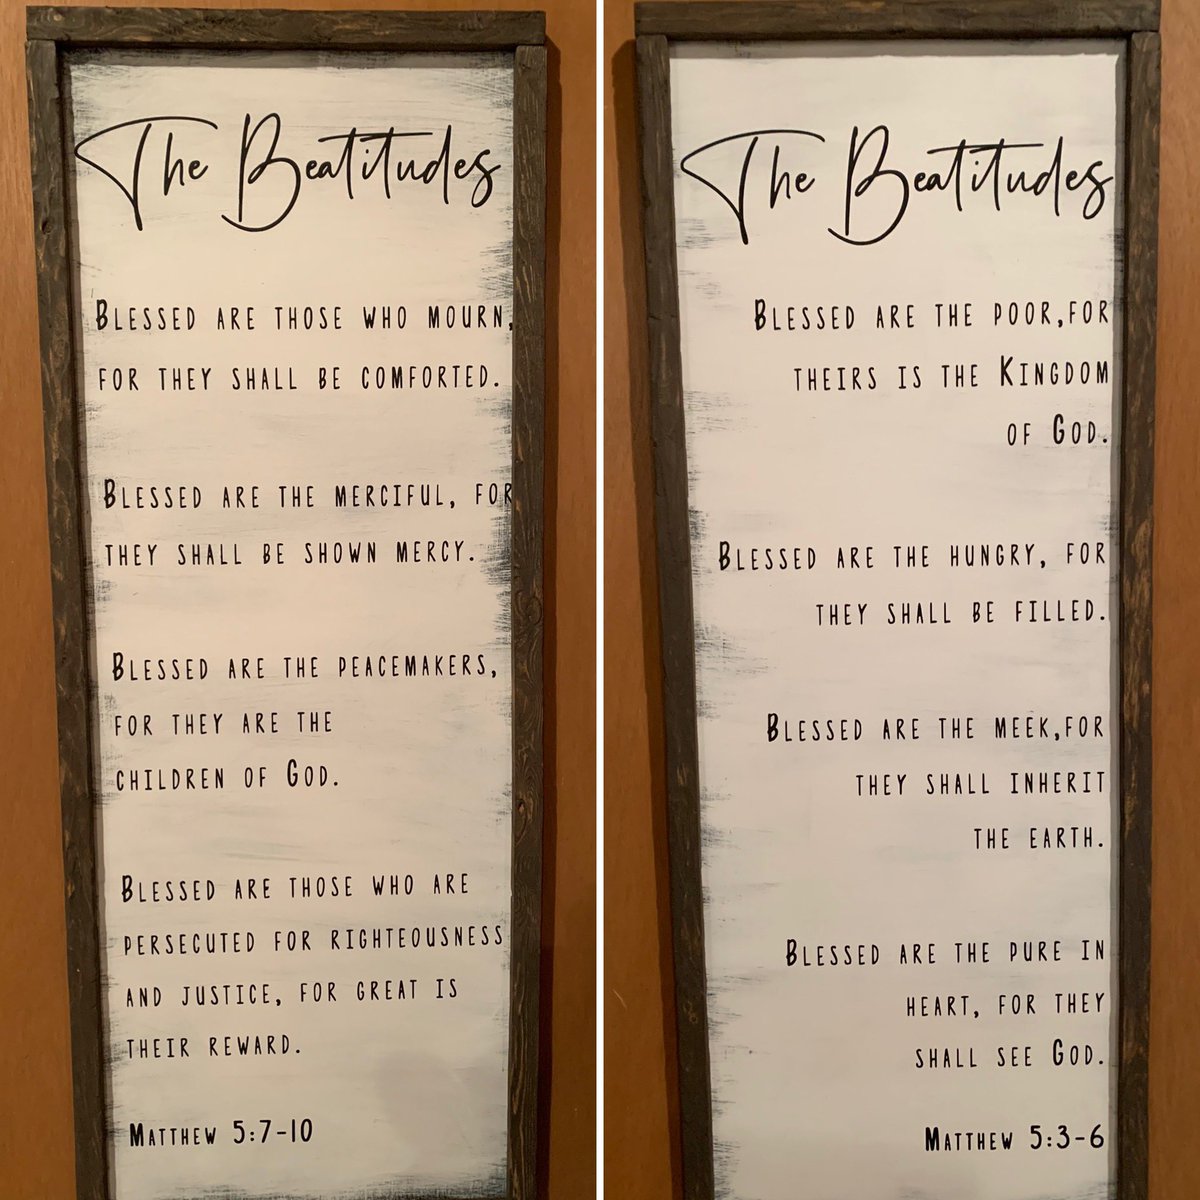 The Beatitudes
Blessed are those who mourn,
for they shall be comforted.
Blessed are the merciful, for
they shall be shown mercy.
Blessed are the peacemakers,
for they are the
children of God.
Blessed are those who are
persecuted for righteousness
and justice, for great is
their reward.
Matthew 5:7-10
The Beatitudes
Blessed are the poor,for
theirs is the Kingdom
of God.
Blessed are the hungry, for
they shall be filled.
Blessed are the meek,for
they shall inherit
the earth.
Blessed are the pure in
heart, for they
shall see God.
Matthew 5:3-6